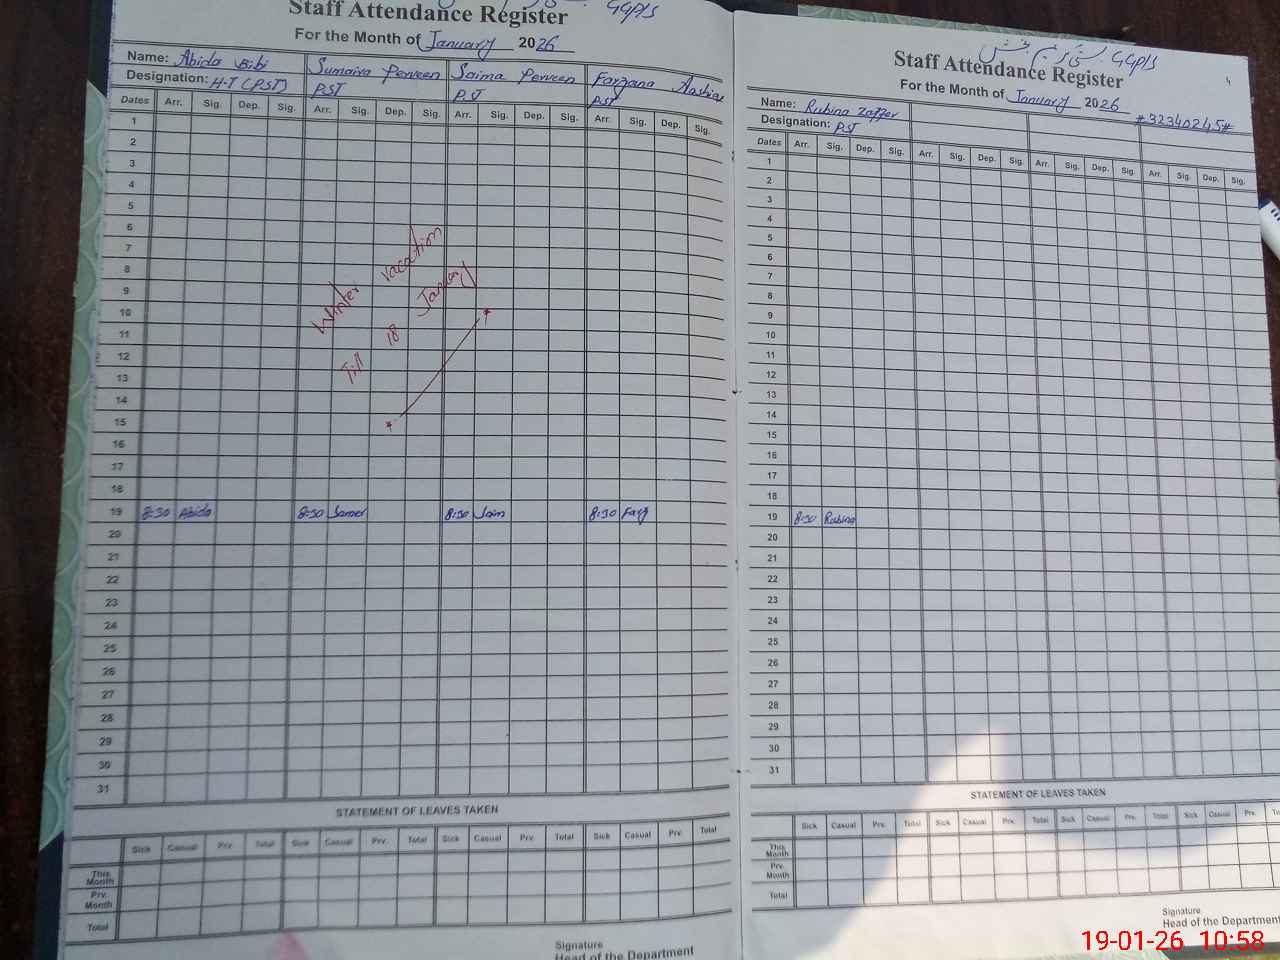 GGPIS
Staff Attendance Register
For the Month of January 2026
Name: Abida Bibi Sumaira Perveen Saima Perveen Farzana
Designation: H-T (PST) PST PST PST
Dates Arr. Sig. Dep. Sig. Arr. Sig. Dep. Sig. Arr. Sig. Dep. Sig. Arr. Sig. Dep. Sig.
1
2
3
4
5
6
7
8
9
10
11
12
13
14
15
16
17
18
Winter vacation
Till 18 January
19 8:30 Abida 8:30 8:30 8:30
20
21
22
23
24
25
26
27
28
29
30
31
STATEMENT OF LEAVES TAKEN
Sick Casual Prv. Total Sick Casual Prv. Total Sick Casual Prv. Total Sick Casual Prv. Total
This Month
Prv. Month
Total
Signature
Head of the Department
GGPIS
Staff Attendance Register
For the Month of January 2026
#32340245#
Name: Rubina Zaffer
Designation: PST
Dates Arr. Sig. Dep. Sig. Arr. Sig. Dep. Sig. Arr. Sig. Dep. Sig. Arr. Sig. Dep. Sig.
1
2
3
4
5
6
7
8
9
10
11
12
13
14
15
16
17
18
19 8:30 Rubina
20
21
22
23
24
25
26
27
28
29
30
31
STATEMENT OF LEAVES TAKEN
Sick Casual Prv. Total Sick Casual Prv. Total Sick Casual Prv. Total Sick Casual Prv.
This Month
Prv. Month
Total
Signature
Head of the Department
19-01-26 10:58